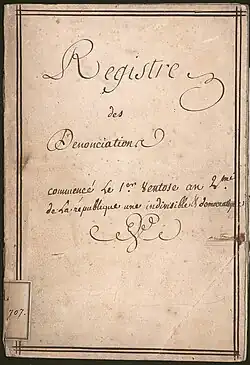 Registre
des
Denonciations
commencé le 1er Ventose an 2me
de la république une indivisible & democratique
707.